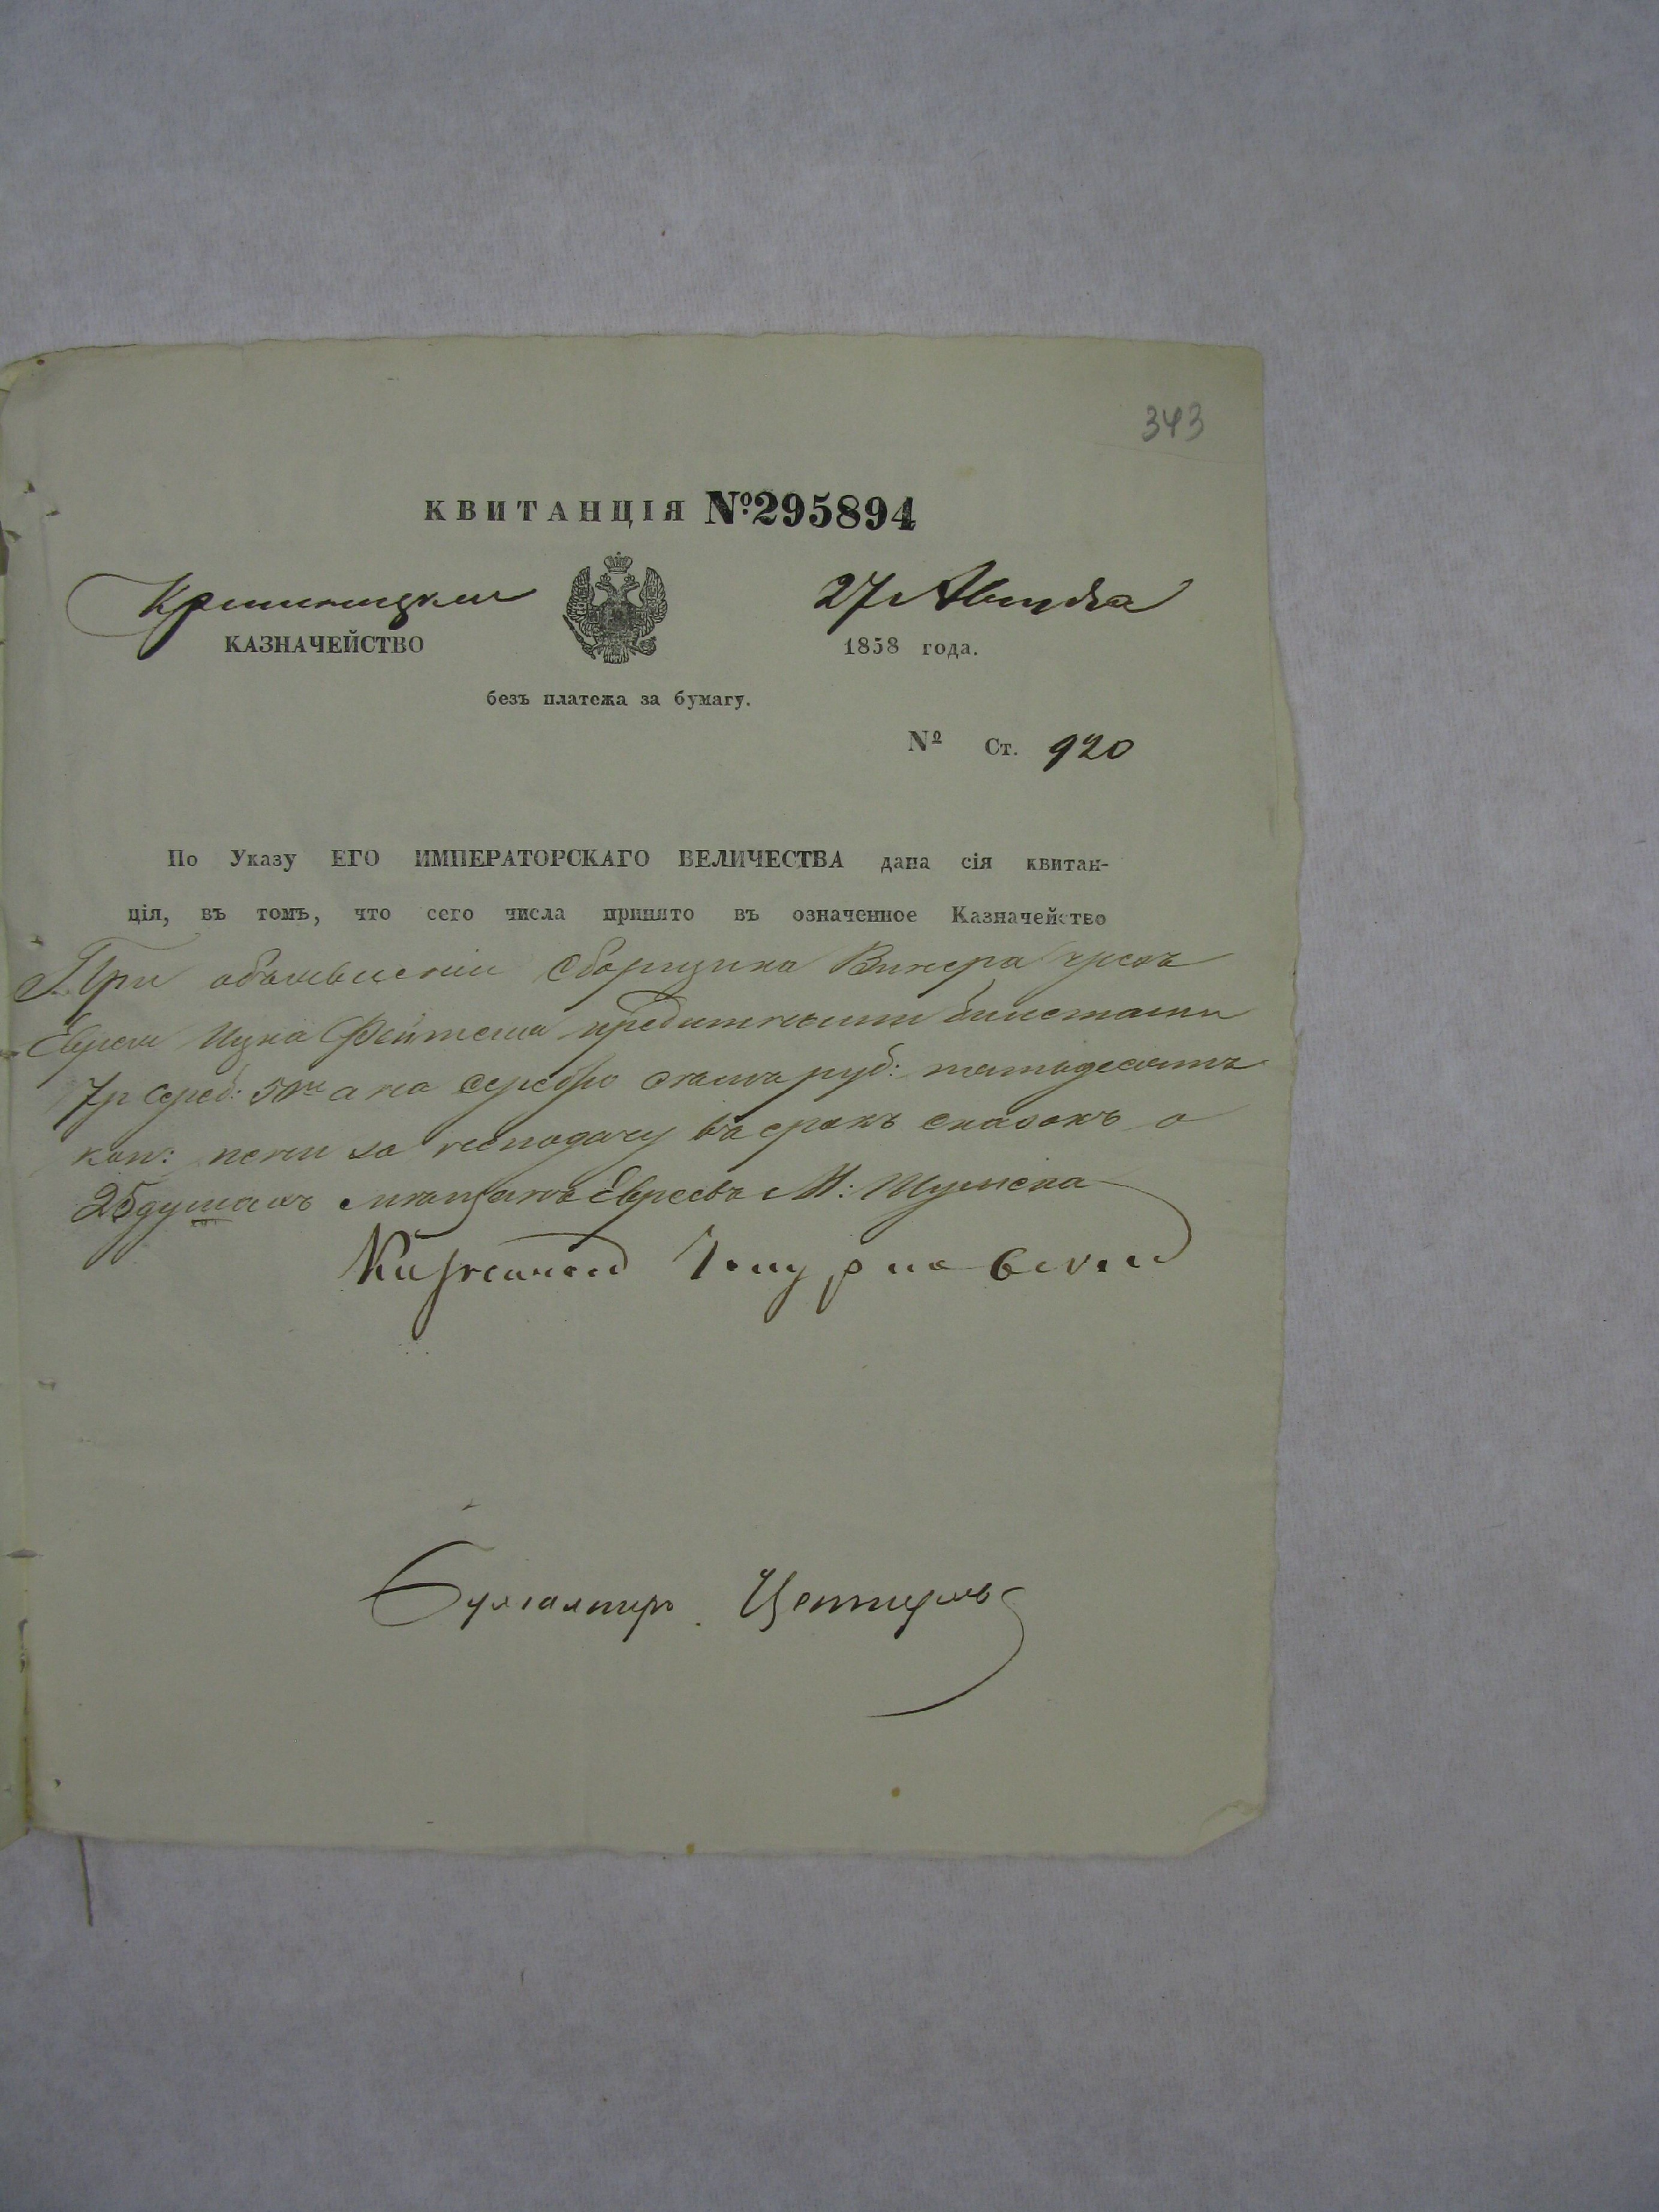 343
КВИТАНЦІЯ №295894
27 Августа
КАЗНАЧЕЙСТВО
1858 года.
безъ платежа за бумагу.
№ Ст. 920
По Указу ЕГО ИМПЕРАТОРСКАГО ВЕЛИЧЕСТВА дана сія квитан-
ція, въ томъ, что сего числа принято въ означенное Казначейство
При объявленіи Сборщика Винера чрезъ
Еврея Ицка кредитными билетами
7р сереб: 50 к а на серебро семь руб: пятьдесятъ
коп: пени за неподачу въ срокъ сказокъ о
25 душахъ мѣщанъ Евреевъ М: Шумска
Казначей
Бухгалтеръ